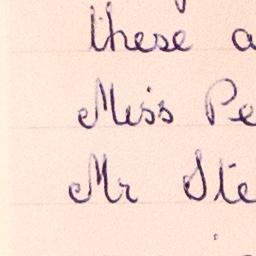 these a
Miss Pe
Mr Ste